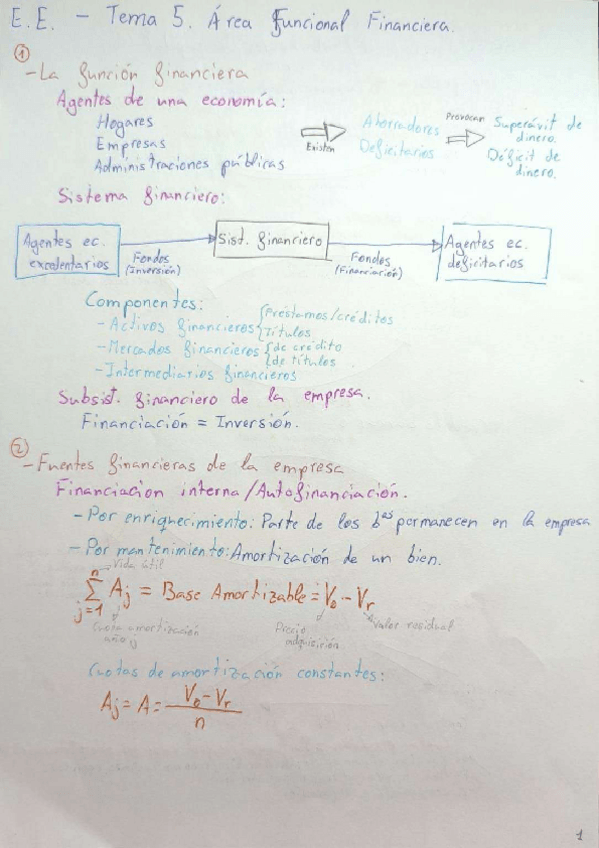 E.E. - Tema 5. Área Funcional Financiera.
①
- La función financiera
Agentes de una economía:
Hogares
Empresas
Administraciones públicas
Existen
Ahorradores
Deficitarios
Provocan
Superávit de
dinero.
Déficit de
dinero.
Sistema financiero:
Agentes ec.
excedentarios
Fondos
(Inversión)
Sist. financiero
Fondos
(Financiación)
Agentes ec.
deficitarios
Componentes:
- Activos financieros { Préstamos/créditos
Títulos
- Mercados financieros { de crédito
de títulos
- Intermediarios financieros
Subsist. financiero de la empresa.
Financiación = Inversión.
②
- Fuentes financieras de la empresa
Financiacion interna/Autofinanciación.
- Por enriquecimiento: Parte de los bᵒˢ permanecen en la empresa
- Por mantenimiento: Amortización de un bien.
Vida útil
n
∑ Aj = Base Amortizable = V₀ - Vr
j=1
Cuota amortización
año j
Precio
adquisición
Valor residual
Cuotas de amortización constantes:
Aj = A = V₀ - Vr
n
1